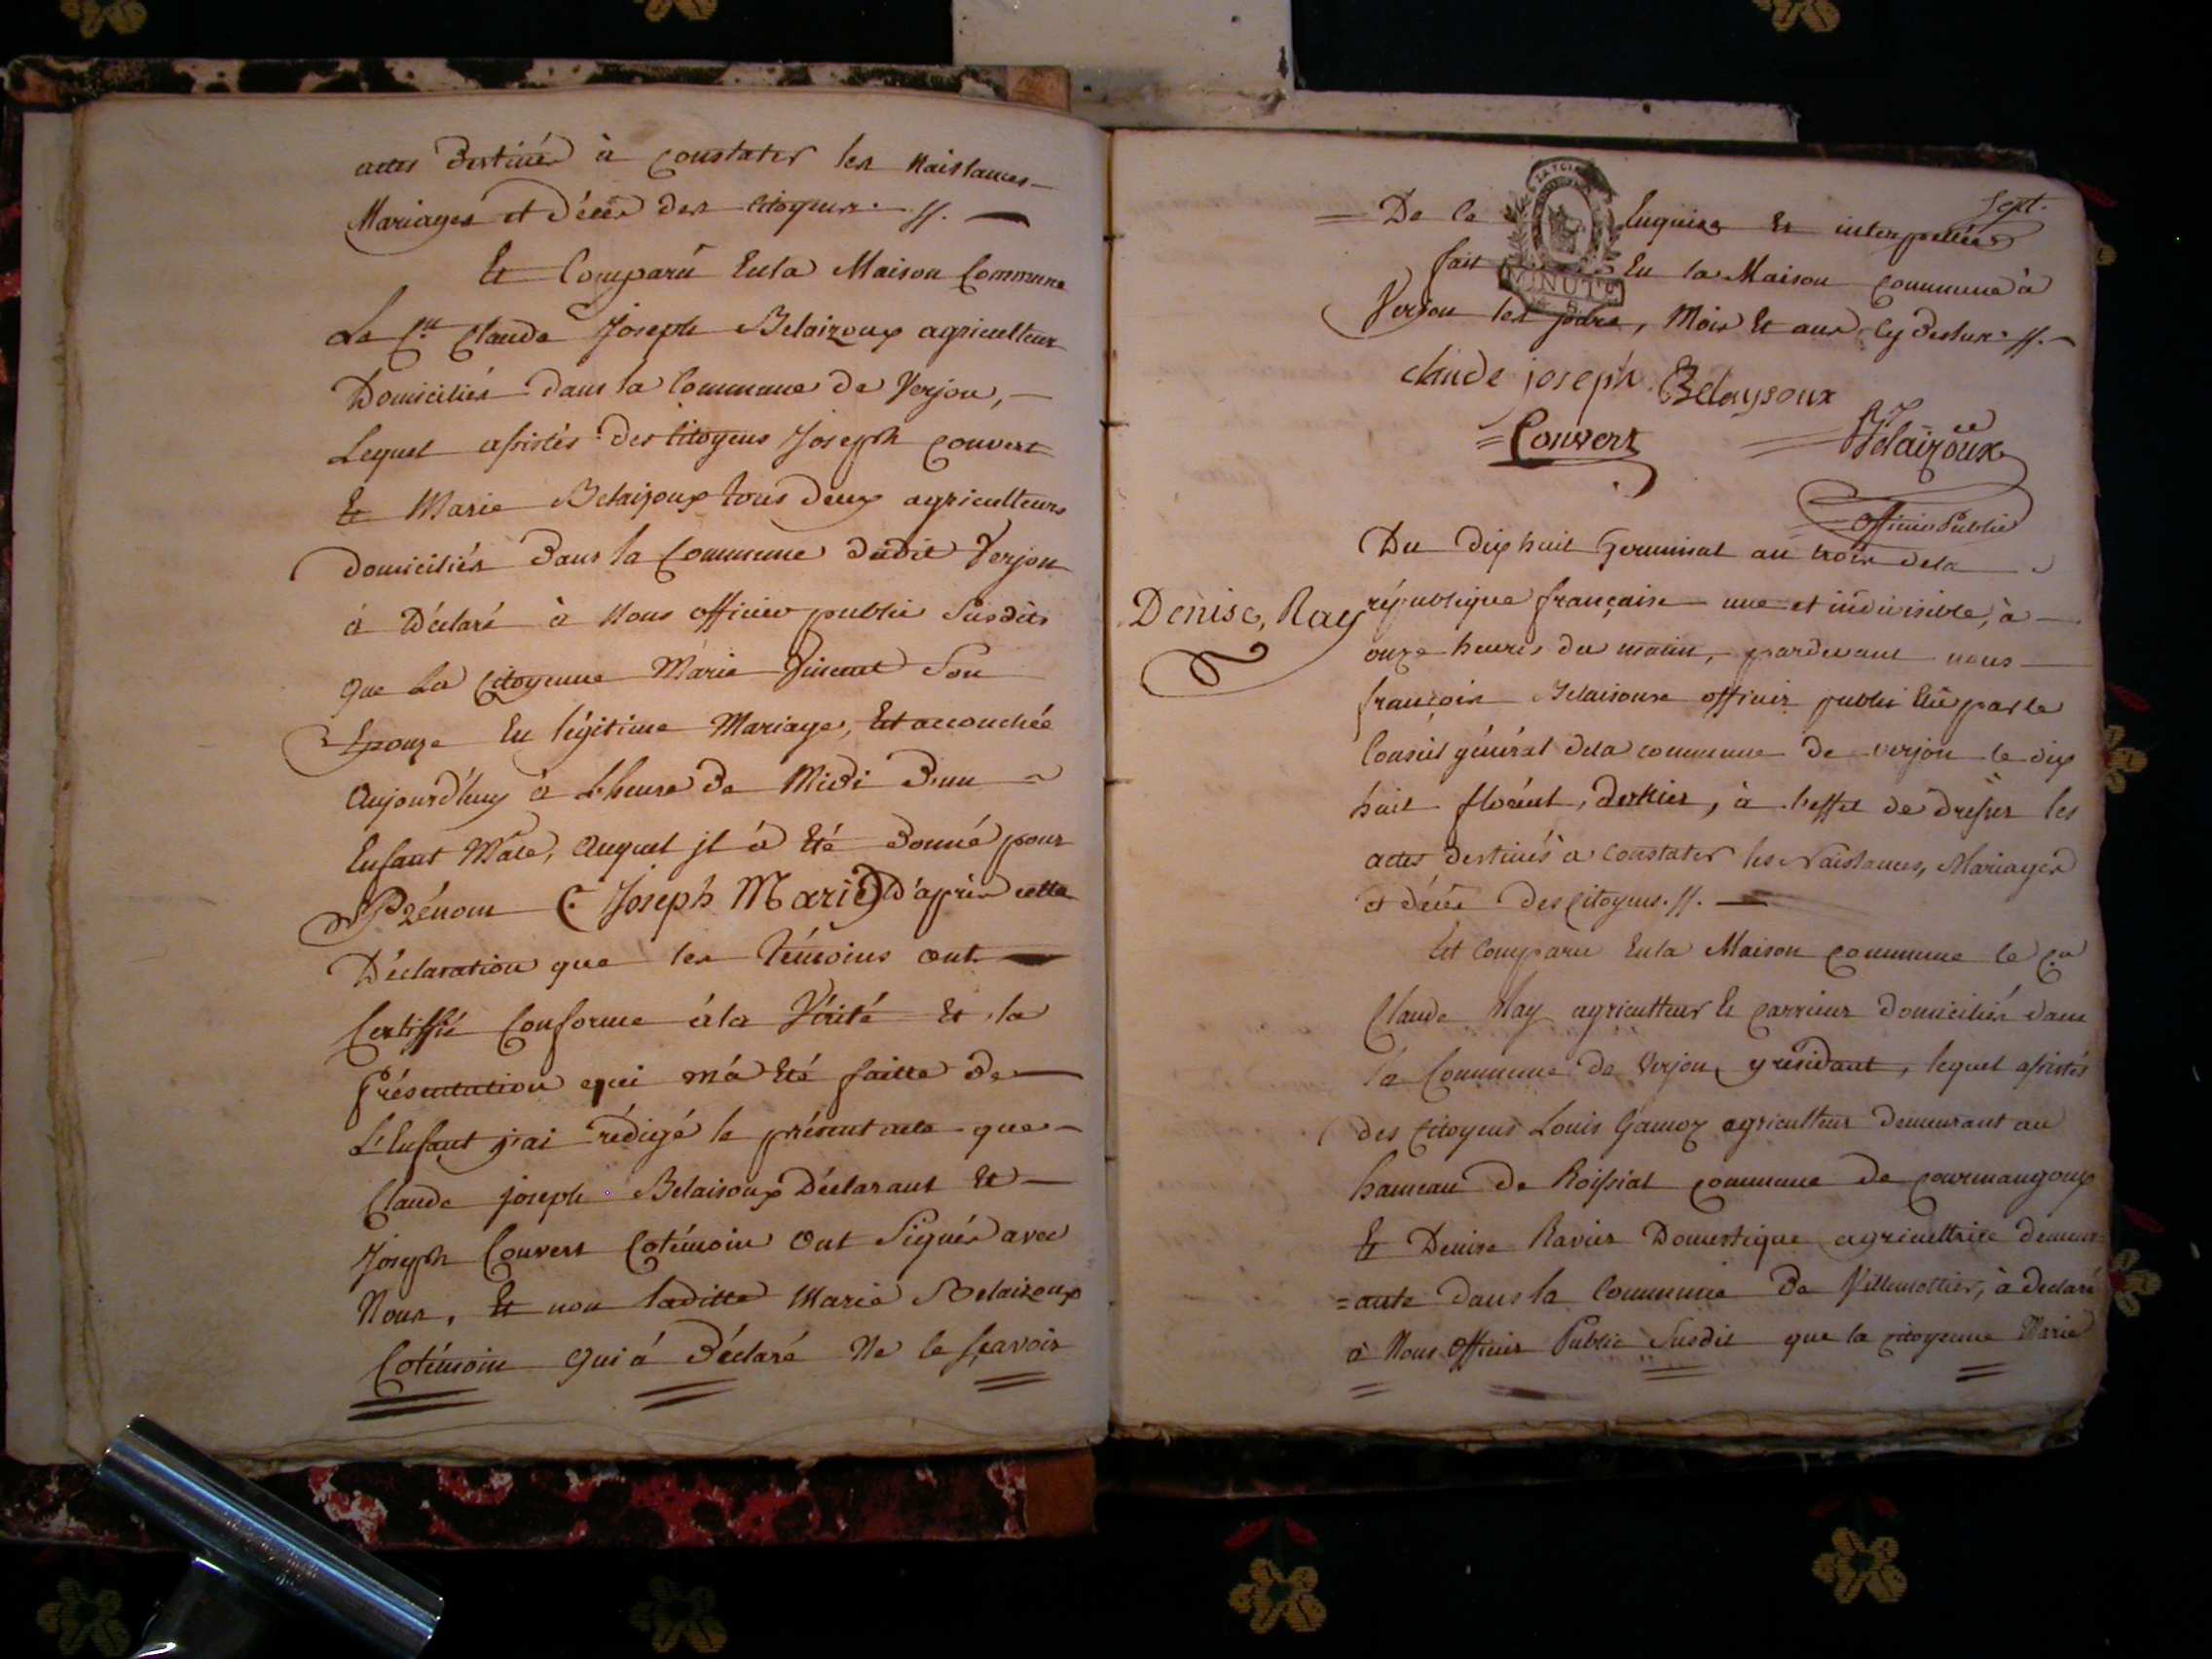 actes Destinés à Constater les Naissances
Mariages et Décès des Citoyens. //.
Est Comparû En la Maison Commune
Le C.en Claude Joseph Belaizoux agriculteur
Domiciliés dans la Commune de Verjon,
Lequel assistés des Citoyens Joseph Convert
Et Marie Belaizoux tous deux agriculteurs
domiciliés dans la Commune dudit Verjon
á Déclaré à Nous officier public Susdits
que La Citoyenne Marie Vincent Son
Epouze En légitime Mariage, Est accouchée
Aujourd'huy à L'heure de Midi D'un
Enfant Male, Auquel jl à Eté donné pour
Prénom Joseph Marie d'après cette
Déclaration que les Témoins ont
Certiffié Conforme á la Vérité Et la
Présentation qui m'á Eté faitte de
L'Enfant j'ai rédigé le présent acte que
Claude joseph Belaisoux Déclarant Et
Joseph Convert Cotémoin Ont Signés avec
Nous, Et non laditte Marie Belaizoux
Cotémoin qui á Déclaré Ne le sçavoir
Sept.
= De ce Enquise Et interpellées
fait En la Maison Commune à
Verjon les jours, Mois Et ans Cy dessus. //.
claude joseph Belaysoux
= Convert
Belaizoux
Officier Public
MINUTE
Denise, Ray
Du dix huit Germinal an trois de la
république française une et indivisible, à
onze heures du matin, pardevant nous
françois Belaisoux officier public Elû par le
Conseil général de la commune de verjon le dix
huit floréal, dernier, à l'effet de dresser les
actes destinés a Constater les Naissances, Mariages
et décès des Citoyens. //.
Est Comparu En la Maison Commune le C.en
Claude Ray agriculteur Et carrieur domiciliés dans
la Commune de Verjon y résidant, lequel assistés
des Citoyens Louis Gamoz agriculteur demeurant au
hameau de Roissiat commune de Courmangoux
Et Denise Ravier Domestique agricultrice demeur
= ante dans la Commune De Villemottier, à déclaré
à Nous Officier Public Susdit que la citoyenne Marie